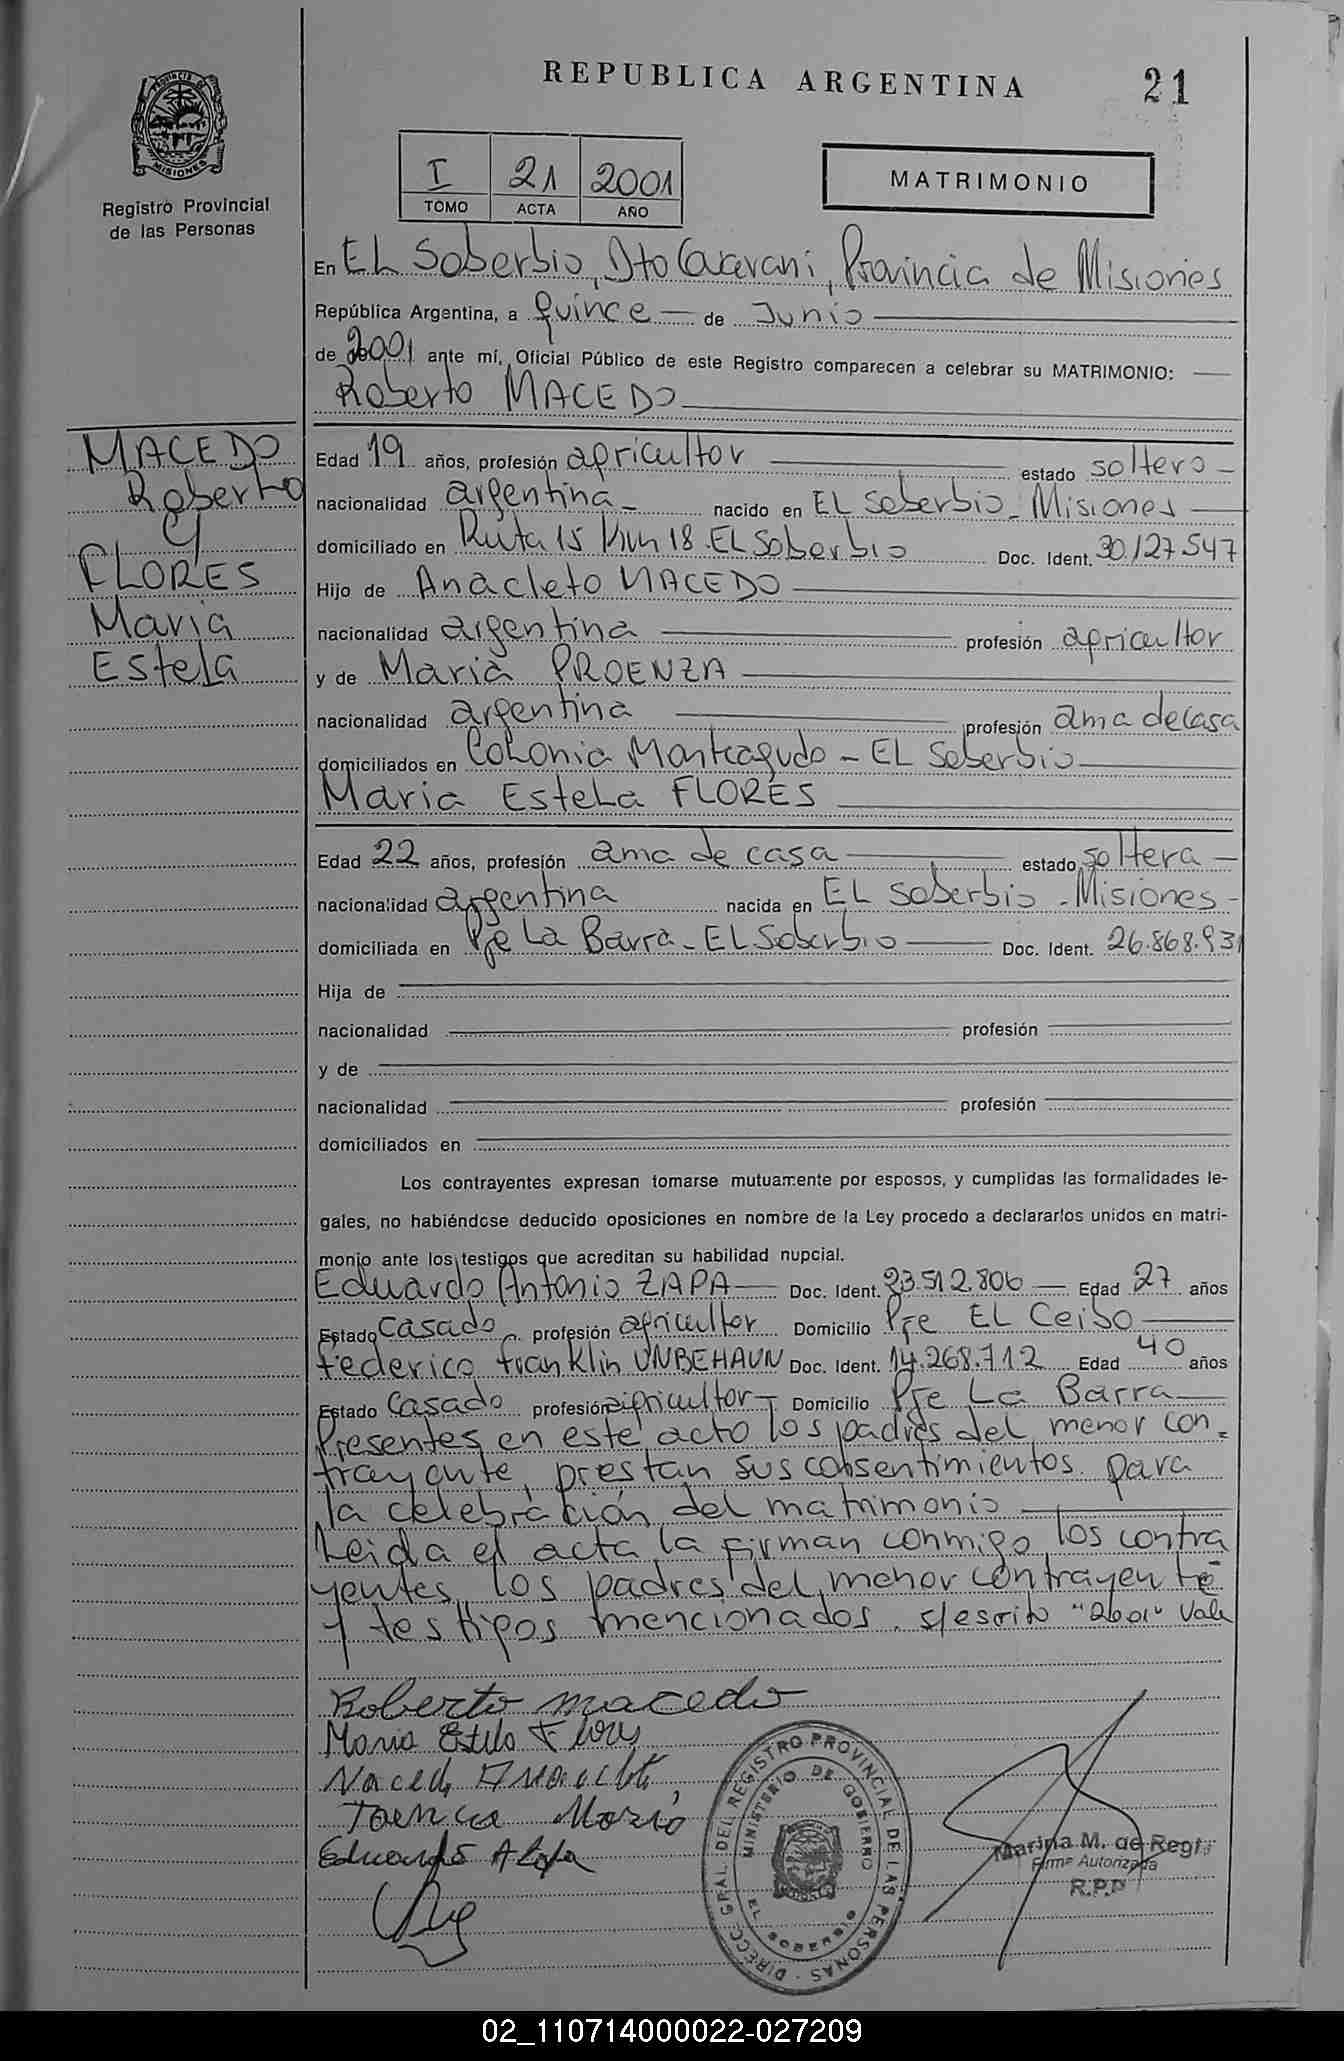 REPUBLICA ARGENTINA
21
PROVINCIA DE
MISIONES
Registro Provincial
de las Personas
I 21 2001
TOMO ACTA AÑO
MATRIMONIO
En EL Soberbio, Dto Guarani, Provincia de Misiones
República Argentina, a quince de Junio
de 2001 ante mí, Oficial Público de este Registro comparecen a celebrar su MATRIMONIO:
Roberto MACEDO
MACEDO
Roberto
y
FLORES
Maria
Estela
Edad 19 años, profesión agricultor estado soltero
nacionalidad argentina nacido en EL Soberbio - Misiones
domiciliado en Ruta 15 Km 18 . EL Soberbio Doc. Ident. 30.127.547
Hijo de Anacleto MACEDO
nacionalidad argentina profesión agricultor
y de Maria PROENZA
nacionalidad argentina profesión ama de casa
domiciliados en Colonia Monteagudo - EL Soberbio
Maria Estela FLORES
Edad 22 años, profesión ama de casa estado soltera
nacionalidad argentina nacida en EL Soberbio - Misiones -
domiciliada en Pje La Barra - EL Soberbio Doc. Ident. 26.868.931
Hija de
nacionalidad profesión
y de
nacionalidad profesión
domiciliados en
Los contrayentes expresan tomarse mutuamente por esposos, y cumplidas las formalidades le-
gales, no habiéndose deducido oposiciones en nombre de la Ley procedo a declararlos unidos en matri-
monio ante los testigos que acreditan su habilidad nupcial.
Eduardo Antonio ZAPA Doc. Ident. 23.512.806 Edad 27 años
Estado Casado profesión agricultor Domicilio Pje EL Ceibo
Federico franklin UNBEHAUN Doc. Ident. 14.268.712 Edad 40 años
Estado Casado profesión agricultor Domicilio Pje La Barra
Presentes en este acto los padres del menor con=
trayente, prestan sus consentimientos para
la celebración del matrimonio
Leida el acta la firman conmigo los contra
yentes, los padres del menor contrayente
y testigos mencionados. s/escrito "2001" Vale
Roberto macedo
Maria Estela Flores
Maced Anaclet
Maria
Eduardo A Zapa
DIRECC. GRAL. DEL REGISTRO PROVINCIAL DE LAS PERSONAS
MINISTERIO DE GOBIERNO
EL SOBERBIO
Marina M. de Regi
Firma Autorizada
R.P.P
02_110714000022-027209